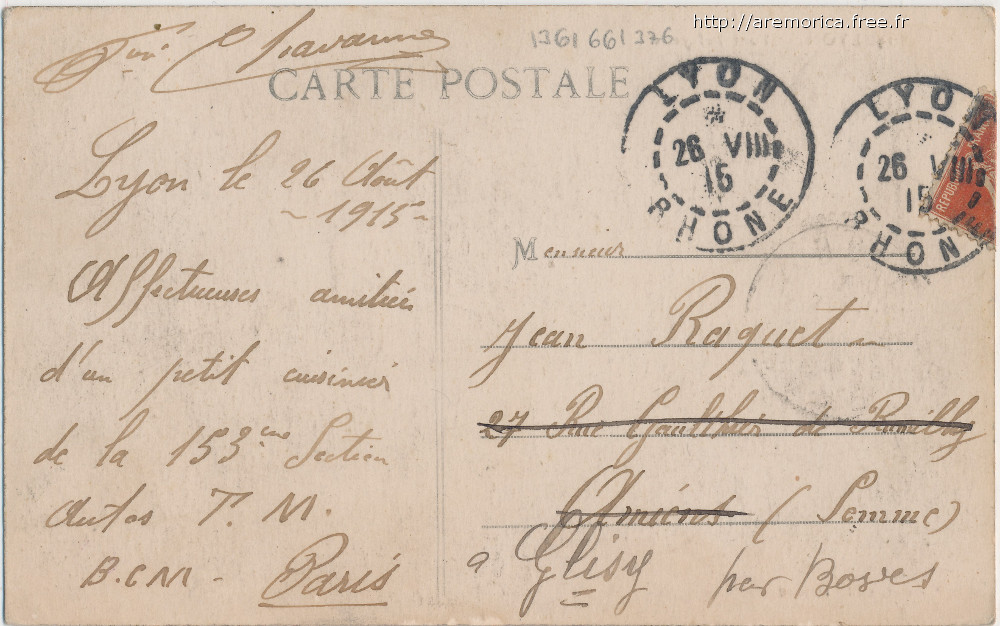 http://aremorica.free.fr
1361 661 376
Chavanne
CARTE POSTALE
LYON
26 VIII
15
RHONE
LYON
26 VIII
15
RHON
REPUB
Lyon le 26 Août
- 1915 -
Affectueuses amitiés
d'un petit cuisinier
de la 153ème Section
autos T. M.
B.C.M - Paris
Monsieur
Jean Raquet
27 Rue Gaulthier de Rumilly
Amiens (Somme)
a Glisy par Boves